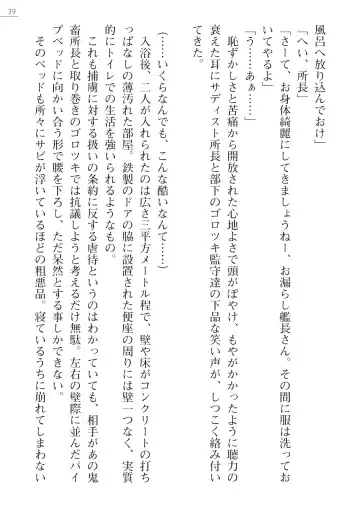 39
風呂へ放り込んでおけ」
「へい、所長」
「さーて、お身体綺麗にしてきましょうねー、お漏らし艦長さん。その間に服は洗ってお
いてやるよ」
「う……あぁ……」
　恥ずかしさと苦痛から開放された心地よさで頭がぼやけ、もやがかかったように聴力の
衰えた耳にサディスト所長と部下のゴロツキ監守達の下品な笑い声が、しつこく絡み付い
てきた。
（……いくらなんでも、こんな酷いなんて……）
　入浴後、二人が入れられたのは広さ三平方メートル程で、壁や床がコンクリートの打ち
っぱなしの薄汚れた部屋。鉄製のドアの脇に設置された便座の周りには壁一つなく、実質
的にトイレでの生活を強いられるようなもの。
　これも捕虜に対する扱いの条約に反する虐待というのはわかっていても、相手があの鬼
畜所長と取り巻きのゴロツキでは抗議しようと考えるだけ無駄。左右の壁際に並んだパイ
プベッドに向かい合う形で腰を下ろし、ただ呆然とする事しかできない。
　そのベッドも所々にサビが浮いているほどの粗悪品。寝ているうちに崩れてしまわない